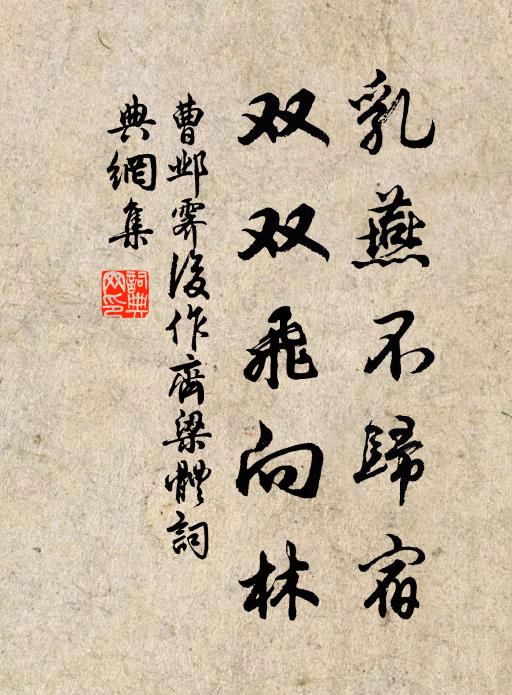 乳燕不歸宿
双双飛向林
曹邺霽後作齊梁體詞
典網集
詞典网印